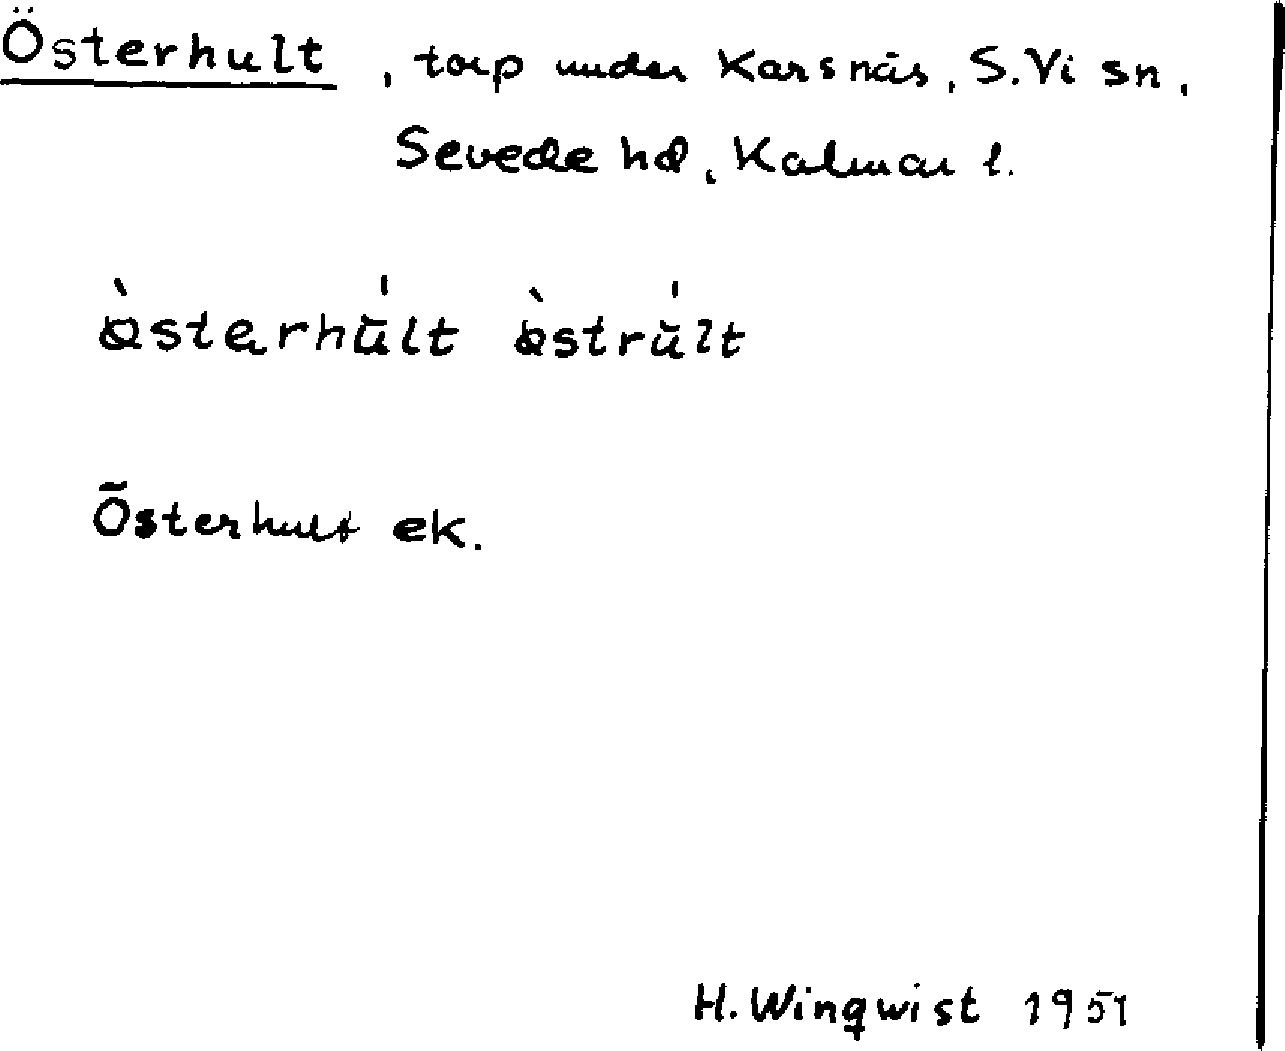 Österhult, torp under Karsnäs, S.Vi sn,
Sevede hd, Kalmar l.
Österhult ek.
H. Wingwist 1951